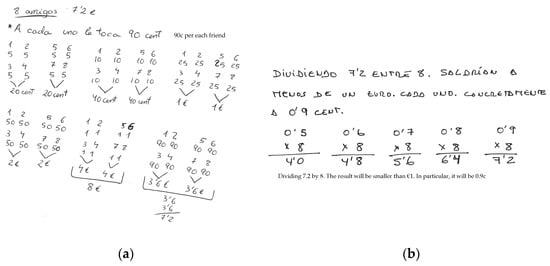 8 amigos 7'2 €
* A cada uno le toca 90 cent 90c per each friend
1 2 5 6 1 2 5 6 1 2 5 6
5 5 5 5 10 10 10 10 25 25 25 25
3 4 7 8 3 4 7 8 3 4 7 8
5 5 5 5 10 10 10 10 25 25 25 25
20 cent 20 cent 40 cent 40 cent 1€ 1€
1 2 5 6 1 2 5 6 1 2 5 6
50 50 50 50 1 1 1 1 90 90 90 90
3 4 7 8 3 4 7 8 3 4 7 8
50 50 50 50 1 1 1 1 90 90 90 90
2€ 2€ 4€ 4€ 3'6€ 3'6€
8€ 3'6
3'6
7'2
(a)
DIVIDIENDO 7'2 ENTRE 8. SALDRÍAN A
MENOS DE UN EURO. CADA UNO. CONCRETAMENTE
A 0'9 CENT.
0'5 0'6 0'7 0'8 0'9
x 8 x 8 x 8 x 8 x 8
4'0 4'8 5'6 6'4 7'2
Dividing 7.2 by 8. The result will be smaller than €1. In particular, it will be 0.9c
(b)